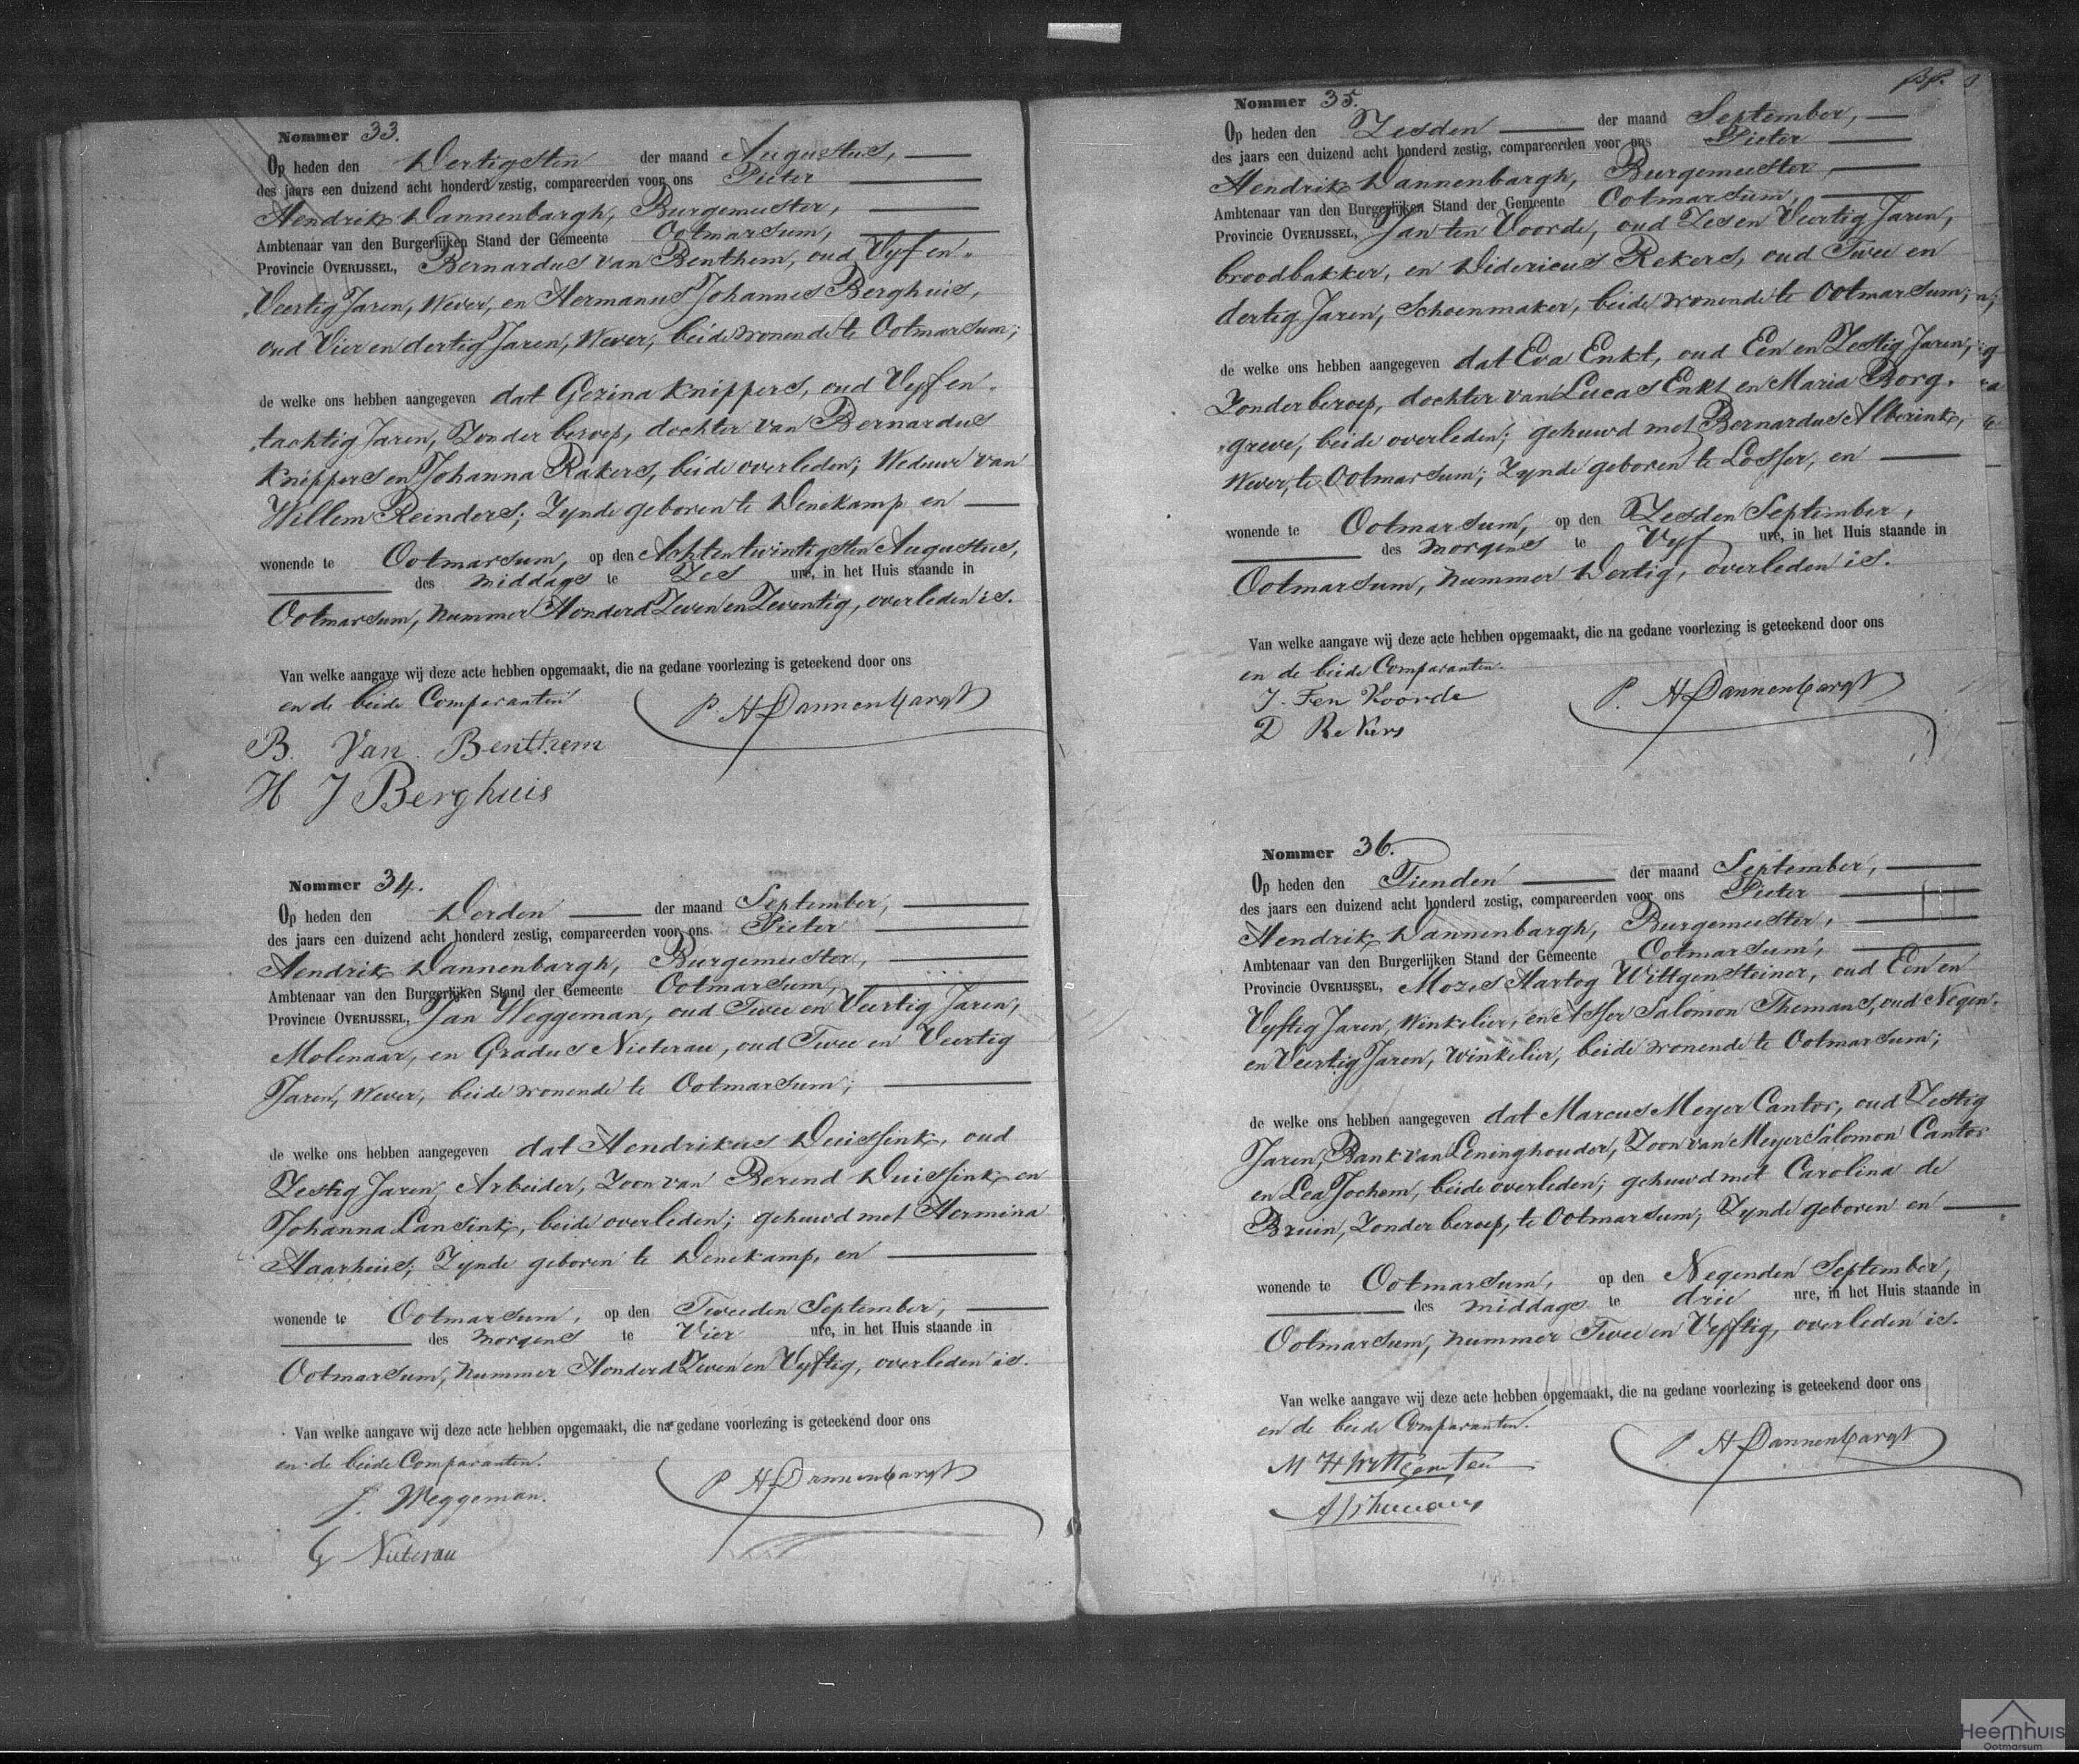 Nommer 33.
Op heden den Dertigsten der maand Augustus,
des jaars een duizend acht honderd zestig, compareerden voor ons Pieter
Hendrik Dannenbargh, Burgemeester,
Ambtenaar van den Burgerlijken Stand der Gemeente Ootmarsum,
Provincie OVERIJSSEL, Bernardus van Benthem, oud Vyf en
Veertig Jaren, Wever, en Hermanus Johannes Berghuis,
oud Vier en dertig Jaren, Wever, beide wonende te Ootmarsum;
de welke ons hebben aangegeven dat Gezina Knippers, oud Vyf en
tachtig Jaren, Zonder beroep, dochter van Bernardus
Knippers en Johanna Rakers, beide overleden; Weduwe van
Willem Reinders; Zynde geboren te Denekamp en
wonende te Ootmarsum, op den Achtentwintigsten Augustus,
des middags te Zes ure, in het Huis staande in
Ootmarsum, nummer Honderd Zeven en Zeventig, overleden is.
Van welke aangave wij deze acte hebben opgemaakt, die na gedane voorlezing is geteekend door ons
en de beide Comparanten
P H Dannenbargh
B. Van Benthem
H J Berghuis
Nommer 34.
Op heden den Derden der maand September,
des jaars een duizend acht honderd zestig, compareerden voor ons Pieter
Hendrik Dannenbargh, Burgemeester,
Ambtenaar van den Burgerlijken Stand der Gemeente Ootmarsum,
Provincie OVERIJSSEL, Jan Weggeman, oud Twee en Veertig Jaren,
Molenaar, en Gradus Nieterau, oud Twee en Veertig
Jaren, Wever, beide wonende te Ootmarsum;
de welke ons hebben aangegeven dat Hendrikus Duissink, oud
Zestig Jaren, Arbeider, Zoon van Berend Duissink en
Johanna Lansink, beide overleden; gehuwd met Hermina
Haarhuis; Zynde geboren te Denekamp, en
wonende te Ootmarsum, op den Tweeden September,
des morgens te Vier ure, in het Huis staande in
Ootmarsum, nummer Honderd Zeven en Vyftig, overleden is.
Van welke aangave wij deze acte hebben opgemaakt, die na gedane voorlezing is geteekend door ons
en de beide Comparanten.
P H Dannenbargh
J. Weggeman.
G Nieterau
Nommer 35.
Op heden den Zesden der maand September,
des jaars een duizend acht honderd zestig, compareerden voor ons Pieter
Hendrik Dannenbargh, Burgemeester,
Ambtenaar van den Burgerlijken Stand der Gemeente Ootmarsum,
Provincie OVERIJSSEL, Jan ten Voorde, oud Zes en Veertig Jaren,
broodbakker, en Didericus Rekers, oud Twee en
dertig Jaren, Schoenmaker, beide wonende te Ootmarsum;
de welke ons hebben aangegeven dat Eva Enkt, oud Een en Zestig Jaren,
Zonder beroep, dochter van Lucas Enkt en Maria Borg
greve, beide overleden; gehuwd met Bernardus Alberink,
Wever, te Ootmarsum; Zynde geboren te Losser, en
wonende te Ootmarsum, op den Zesden September,
des morgens te Vyf ure, in het Huis staande in
Ootmarsum, nummer Dertig, overleden is.
Van welke aangave wij deze acte hebben opgemaakt, die na gedane voorlezing is geteekend door ons
en de beide Comparanten.
P. H Dannenbargh
J. Ten Voorde
D Rekers
Nommer 36.
Op heden den Tienden der maand September,
des jaars een duizend acht honderd zestig, compareerden voor ons Pieter
Hendrik Dannenbargh, Burgemeester,
Ambtenaar van den Burgerlijken Stand der Gemeente Ootmarsum,
Provincie OVERIJSSEL, Mozes Hartog Wittgensteiner, oud Een en
Vyftig Jaren, Winkelier, en Asser Salomon Themans, oud Negen
en Veertig Jaren, Winkelier, beide wonende te Ootmarsum;
de welke ons hebben aangegeven dat Marcus Meyer Cantor, oud Zestig
Jaren, Bank van Leninghouder, Zoon van Meyer Salomon Cantor
en Lea Jochem, beide overleden; gehuwd met Carolina de
Bruin, Zonder beroep, te Ootmarsum; Zynde geboren en
wonende te Ootmarsum, op den Negenden September,
des middags te drie ure, in het Huis staande in
Ootmarsum, nummer Twee en Vyftig, overleden is.
Van welke aangave wij deze acte hebben opgemaakt, die na gedane voorlezing is geteekend door ons
en de beide Comparanten.
P H Dannenbargh
M H
Heemhuis
Ootmarsum